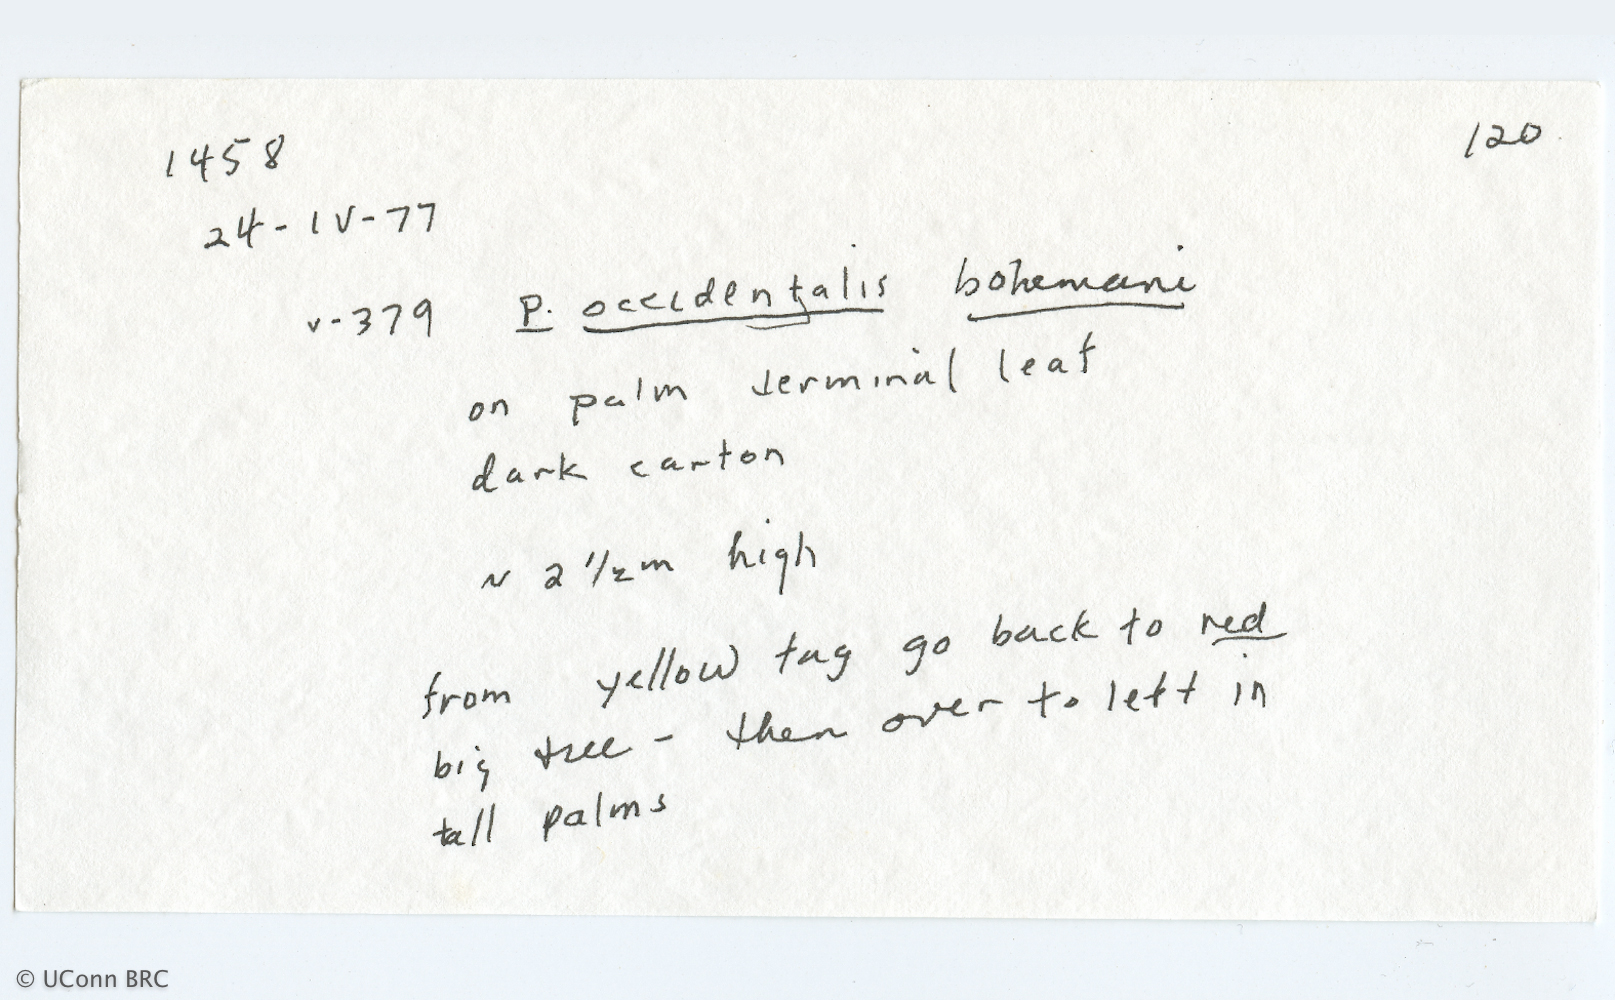 1458
120
24-IV-77
v-379 P. occidentalis bohemani
on palm terminal leaf
dark carton
~ 2 1/2 m high
from yellow tag go back to red
big tree - then over to left in
tall palms
© UConn BRC